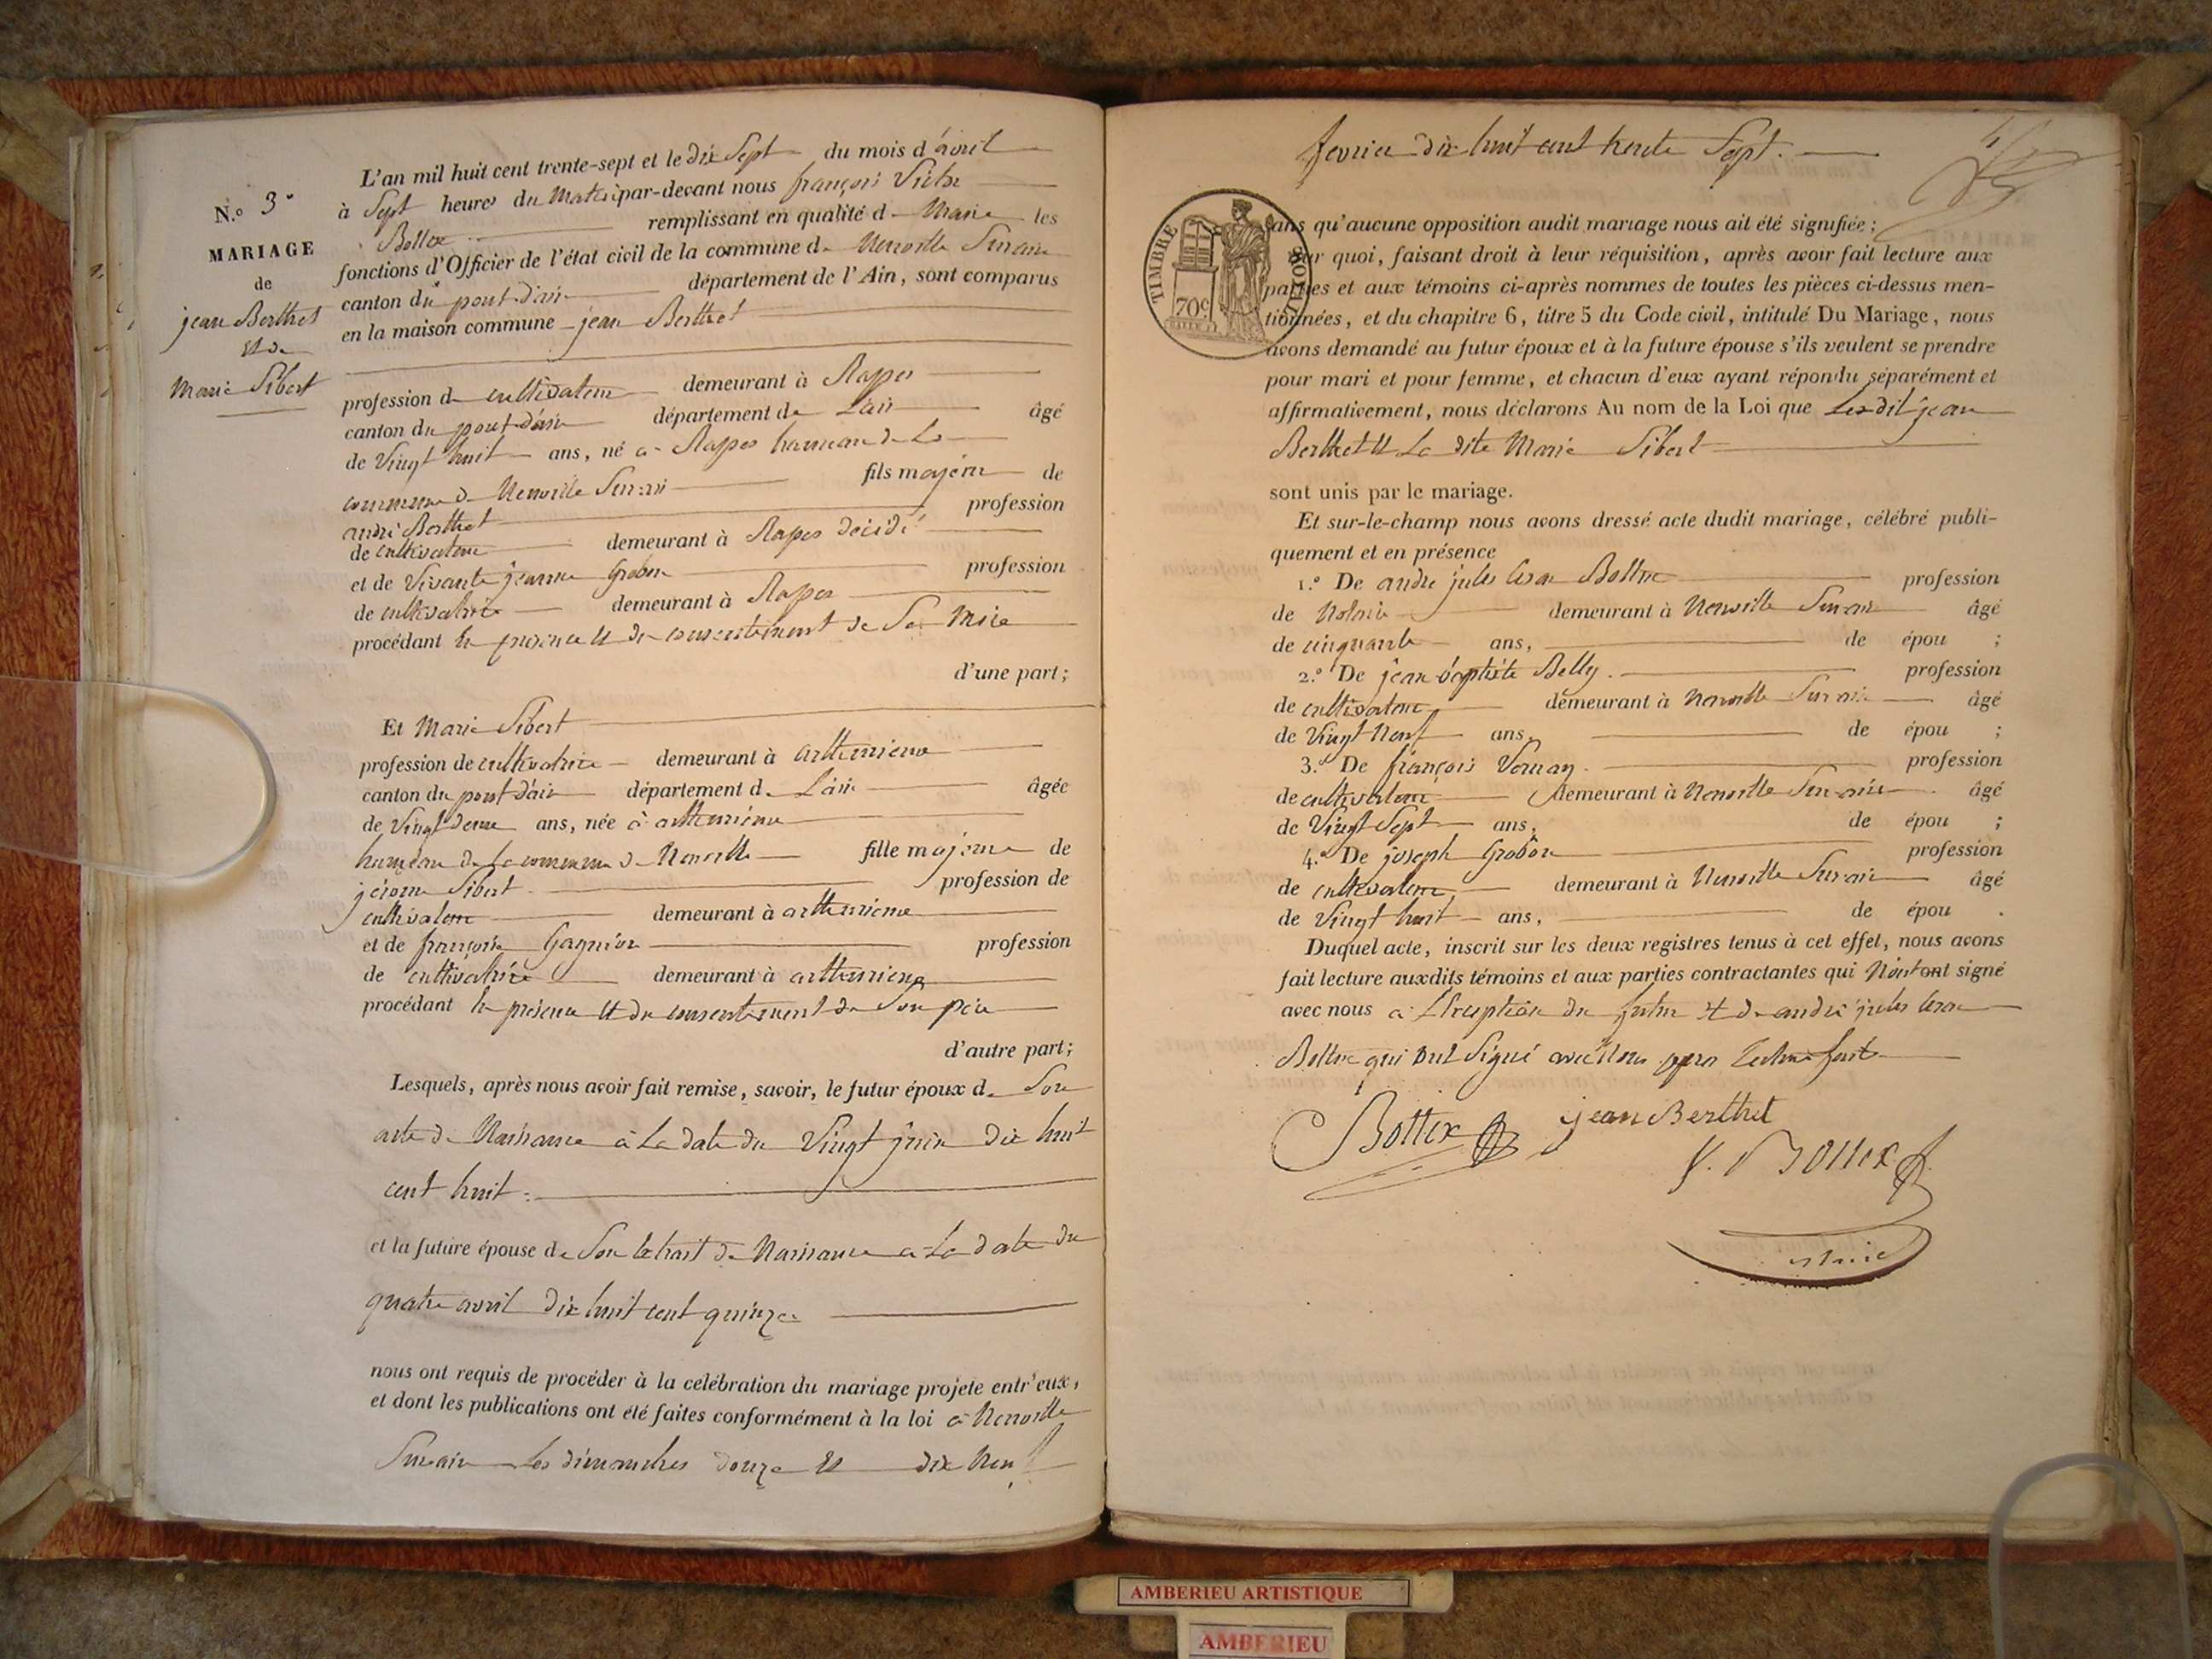 N.º 3.
MARIAGE
de
jean Berthet
et de
Marie Sibert
L'an mil huit cent trente-sept et le dix Sept du mois d'avril
à Sept heures du Matin par-devant nous françois Victor
Bottex remplissant en qualité de Maire les
fonctions d'Officier de l'état civil de la commune de Neuville Sur ain
canton du pont d'ain département de l'Ain, sont comparus
en la maison commune jean Berthet
profession de cultivateur demeurant à Rapes
canton du pont d'ain département de L'ain âgé
de Vingt huit ans, né à Rapes hameau de La
commune de Neuville Sur ain fils majeur de
andré Berthet profession
de cultivateur demeurant à Rapes décédé
et de Vivante jeanne Grobon profession
de cultivatrice demeurant à Rapes
procédant En présence et du consentement de Sa Mère
d'une part;
Et Marie Sibert
profession de cultivatrice demeurant à
canton du pont d'ain département de L'ain âgée
de Vingt deux ans, née à
hameau de La commune de Neuville fille majeure de
jérome Sibert profession de
cultivateur demeurant à
et de françoise Gagnion profession
de cultivatrice demeurant à
procédant En présence et du consentement de Son père
d'autre part;
Lesquels, après nous avoir fait remise, savoir, le futur époux de Son
acte de Naissance à La date du Vingt juin dix huit
cent huit.
et la future épouse de Son Extrait de Naissance a La date du
quatre avril dix huit cent quinze
nous ont requis de procéder à la celébration du mariage projeté entr'eux,
et dont les publications ont été faites conformément à la loi à Neuville
Sur ain Les dimanches douze et dix Neuf
fevrier dix huit cent trente Sept.
TIMBRE ROYAL
70c
sans qu'aucune opposition audit mariage nous ait été signifiée;
Sur quoi, faisant droit à leur réquisition, après avoir fait lecture aux
parties et aux témoins ci-après nommes de toutes les pièces ci-dessus men-
tionnées, et du chapitre 6, titre 5 du Code civil, intitulé Du Mariage, nous
avons demandé au futur époux et à la future épouse s'ils veulent se prendre
pour mari et pour femme, et chacun d'eux ayant répondu séparément et
affirmativement, nous déclarons Au nom de la Loi que Le dit jean
Berthet et La dite Marie Sibert
sont unis par le mariage.
Et sur-le-champ nous avons dressé acte dudit mariage, célébré publi-
quement et en présence
1.º De andré jules César Bottex profession
de Notaire demeurant à Neuville Sur ain âgé
de cinquante ans, de épou ;
2.º De jean baptiste Belly profession
de cultivateur demeurant à Neuville Sur ain âgé
de Vingt Neuf ans, de épou ;
3.º De françois Vernay profession
de cultivateur demeurant à Neuville Sur ain âgé
de Vingt Sept ans, de épou ;
4.º De joseph Grobon profession
de cultivateur demeurant à Neuville Sur ain âgé
de Vingt huit ans, de épou .
Duquel acte, inscrit sur les deux registres tenus à cet effet, nous avons
fait lecture auxdits témoins et aux parties contractantes qui N'ont ont signé
avec nous à L'exception du futur et de andré jules César
Bottex qui ont Signé avec Nous après lecture faite
Bottex jean Berthet
V. Bottex
maire
AMBERIEU ARTISTIQUE
AMBERIEU